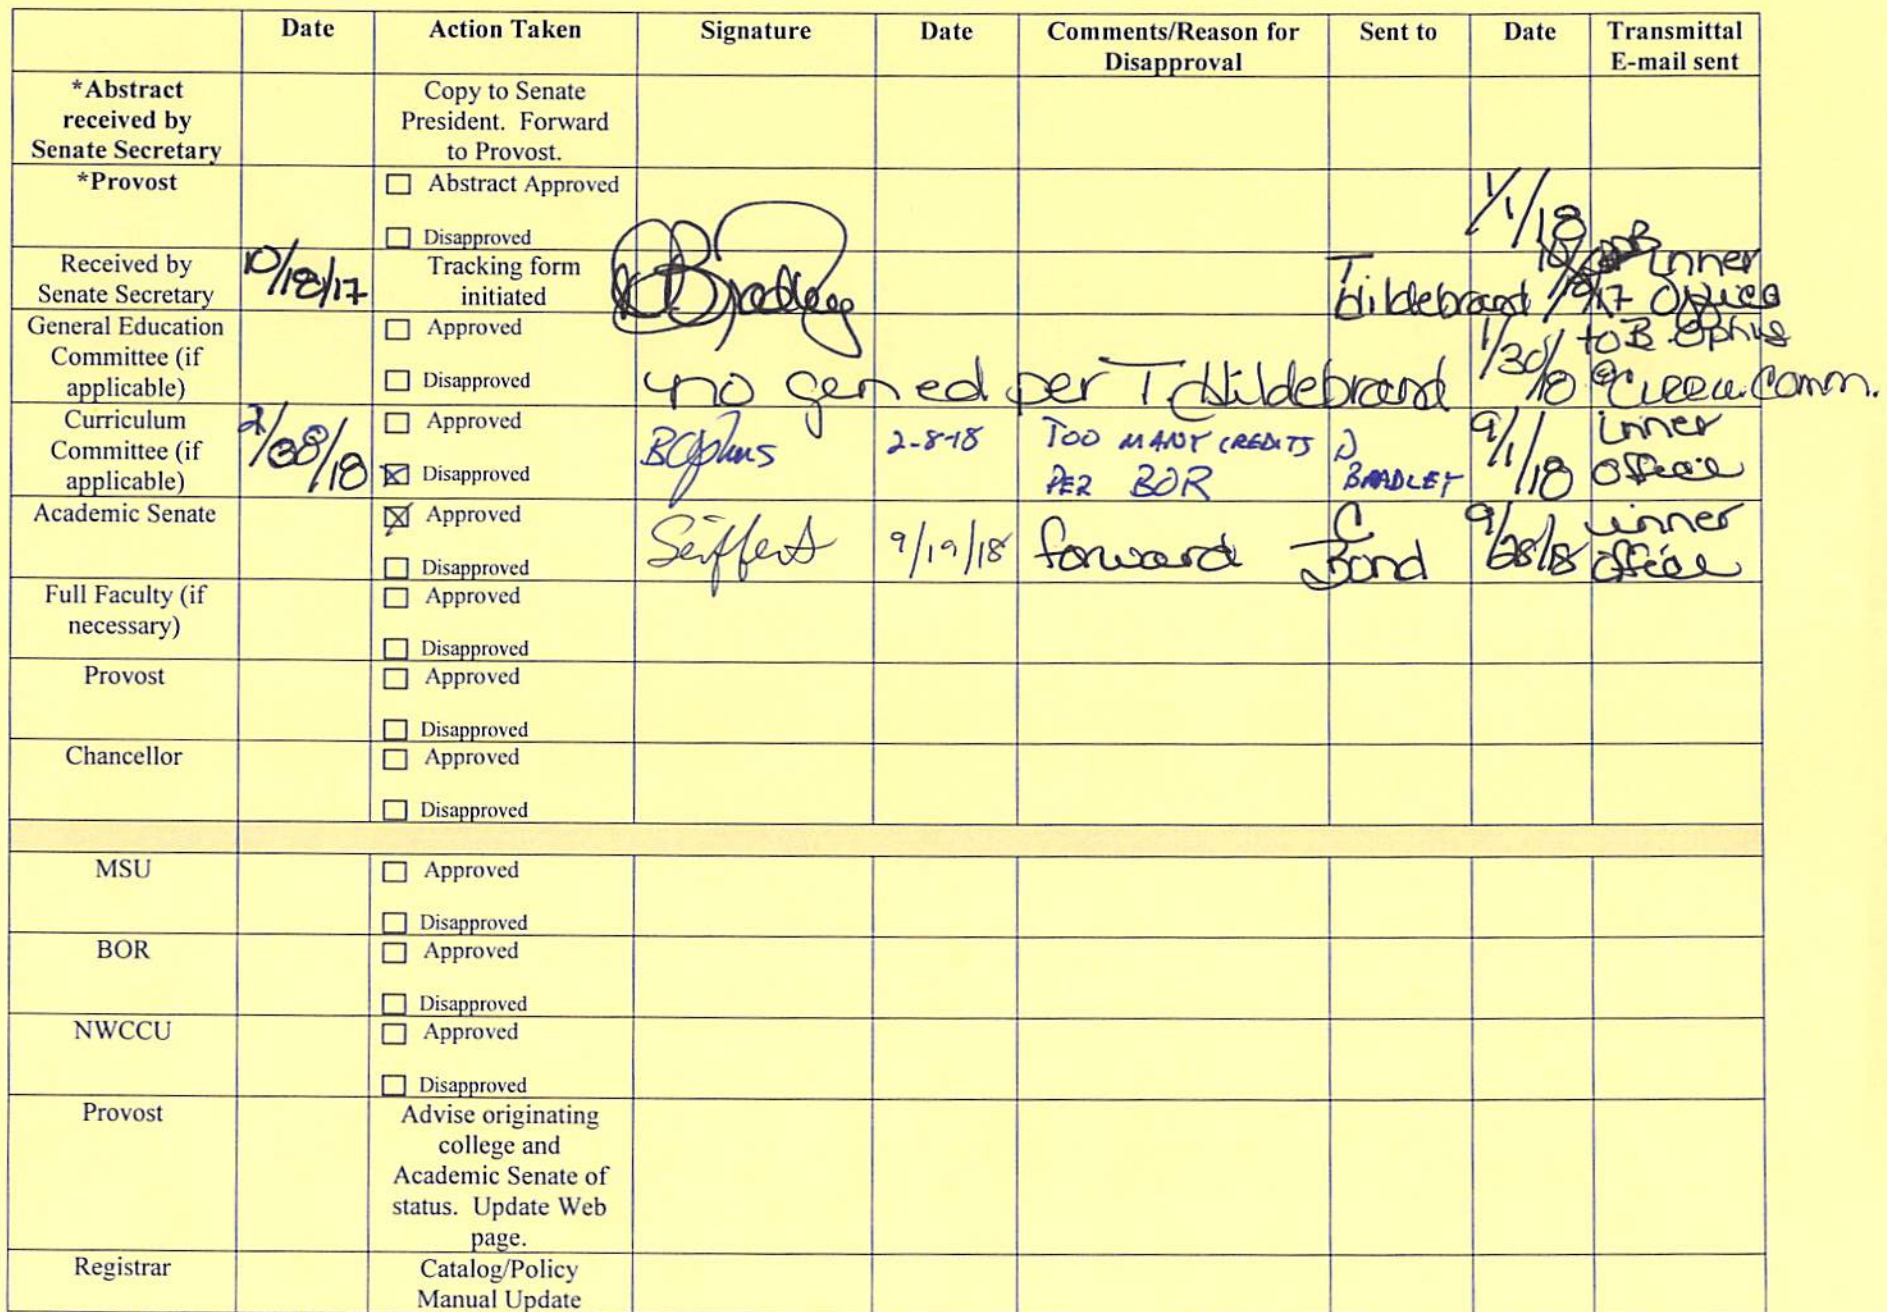 Date Action Taken Signature Date Comments/Reason for Sent to Date Transmittal
Disapproval E-mail sent
*Abstract
received by
Senate Secretary
Copy to Senate
President. Forward
to Provost.
*Provost
Abstract Approved
Disapproved
1/1/18
Received by
Senate Secretary
10/18/17
Tracking form
initiated
Bradley
T
Hildebrand
17
inner
office
General Education
Committee (if
applicable)
Approved
Disapproved
no gen ed per T. Hildebrand
1/30/18
to B
Comm.
Curriculum
Committee (if
applicable)
Approved
Disapproved
2-8-18
TOO MANY CREDITS
PER BOR
D
BRADLEY
9/1/18
inner
office
Academic Senate
Approved
Disapproved
Seiffert
9/19/18
forward
C
Bond
9/28/18
inner
office
Full Faculty (if
necessary)
Approved
Disapproved
Provost
Approved
Disapproved
Chancellor
Approved
Disapproved
MSU
Approved
Disapproved
BOR
Approved
Disapproved
NWCCU
Approved
Disapproved
Provost
Advise originating
college and
Academic Senate of
status. Update Web
page.
Registrar
Catalog/Policy
Manual Update